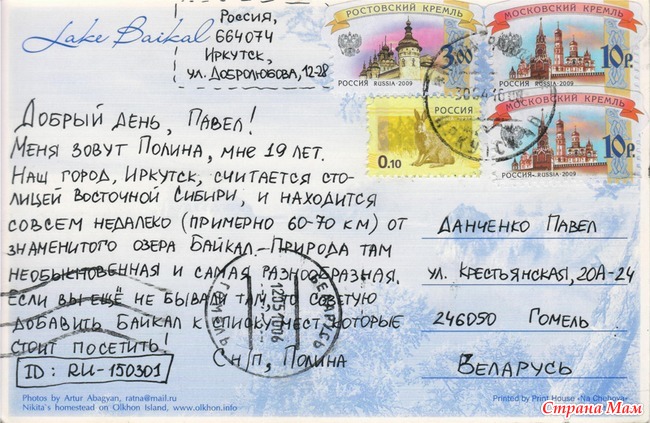 Lake Baikal
Россия,
664074
Иркутск,
ул. Добролюбова, 12-28
РОСТОВСКИЙ КРЕМЛЬ
3,00
РОССИЯ RUSSIA · 2009
МОСКОВСКИЙ КРЕМЛЬ
10 р.
РОССИЯ RUSSIA · 2009
РОССИЯ
0.10
МОСКОВСКИЙ КРЕМЛЬ
10 р.
РОССИЯ RUSSIA · 2009
Добрый день, Павел!
Меня зовут Полина, мне 19 лет.
Наш город, Иркутск, считается сто-
лицей Восточной Сибири, и находится
совсем недалеко (примерно 60-70 км) от
знаменитого озера Байкал. Природа там
необыкновенная и самая разнообразная.
Если вы ещё не бывали там, то советую
добавить Байкал к списку мест, которые
стоит посетить!
С н/п, Полина
ID: RU-150301
Данченко Павел
ул. Крестьянская, 20А-24
246050 Гомель
Беларусь
БЕЛАРУСЬ
ГОМЕЛЬ
Photos by Artur Abagyan, ratna@mail.ru
Nikita's homestead on Olkhon Island, www.olkhon.info
Printed by Print House «Na Chehova»
Страна Мам